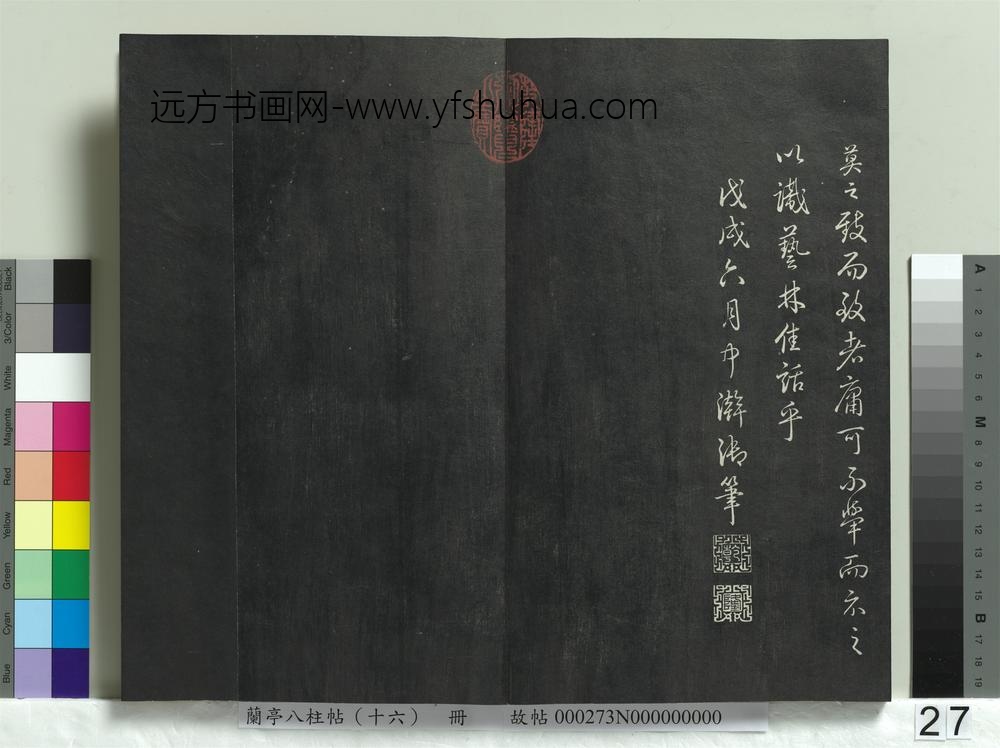 远方书画网-www.yfshuhua.com
莫之致而致者庸可不犖而示之
以識藝林佳話乎
戊戌六月中澣御筆
蘭亭八柱帖（十六） 冊 故帖 000273N000000000
27
Black
3/Color
White
Magenta
Red
Yellow
Green
Cyan
Blue
A
1
2
3
4
5
6
M
8
9
10
11
12
13
14
15
B
17
18
19